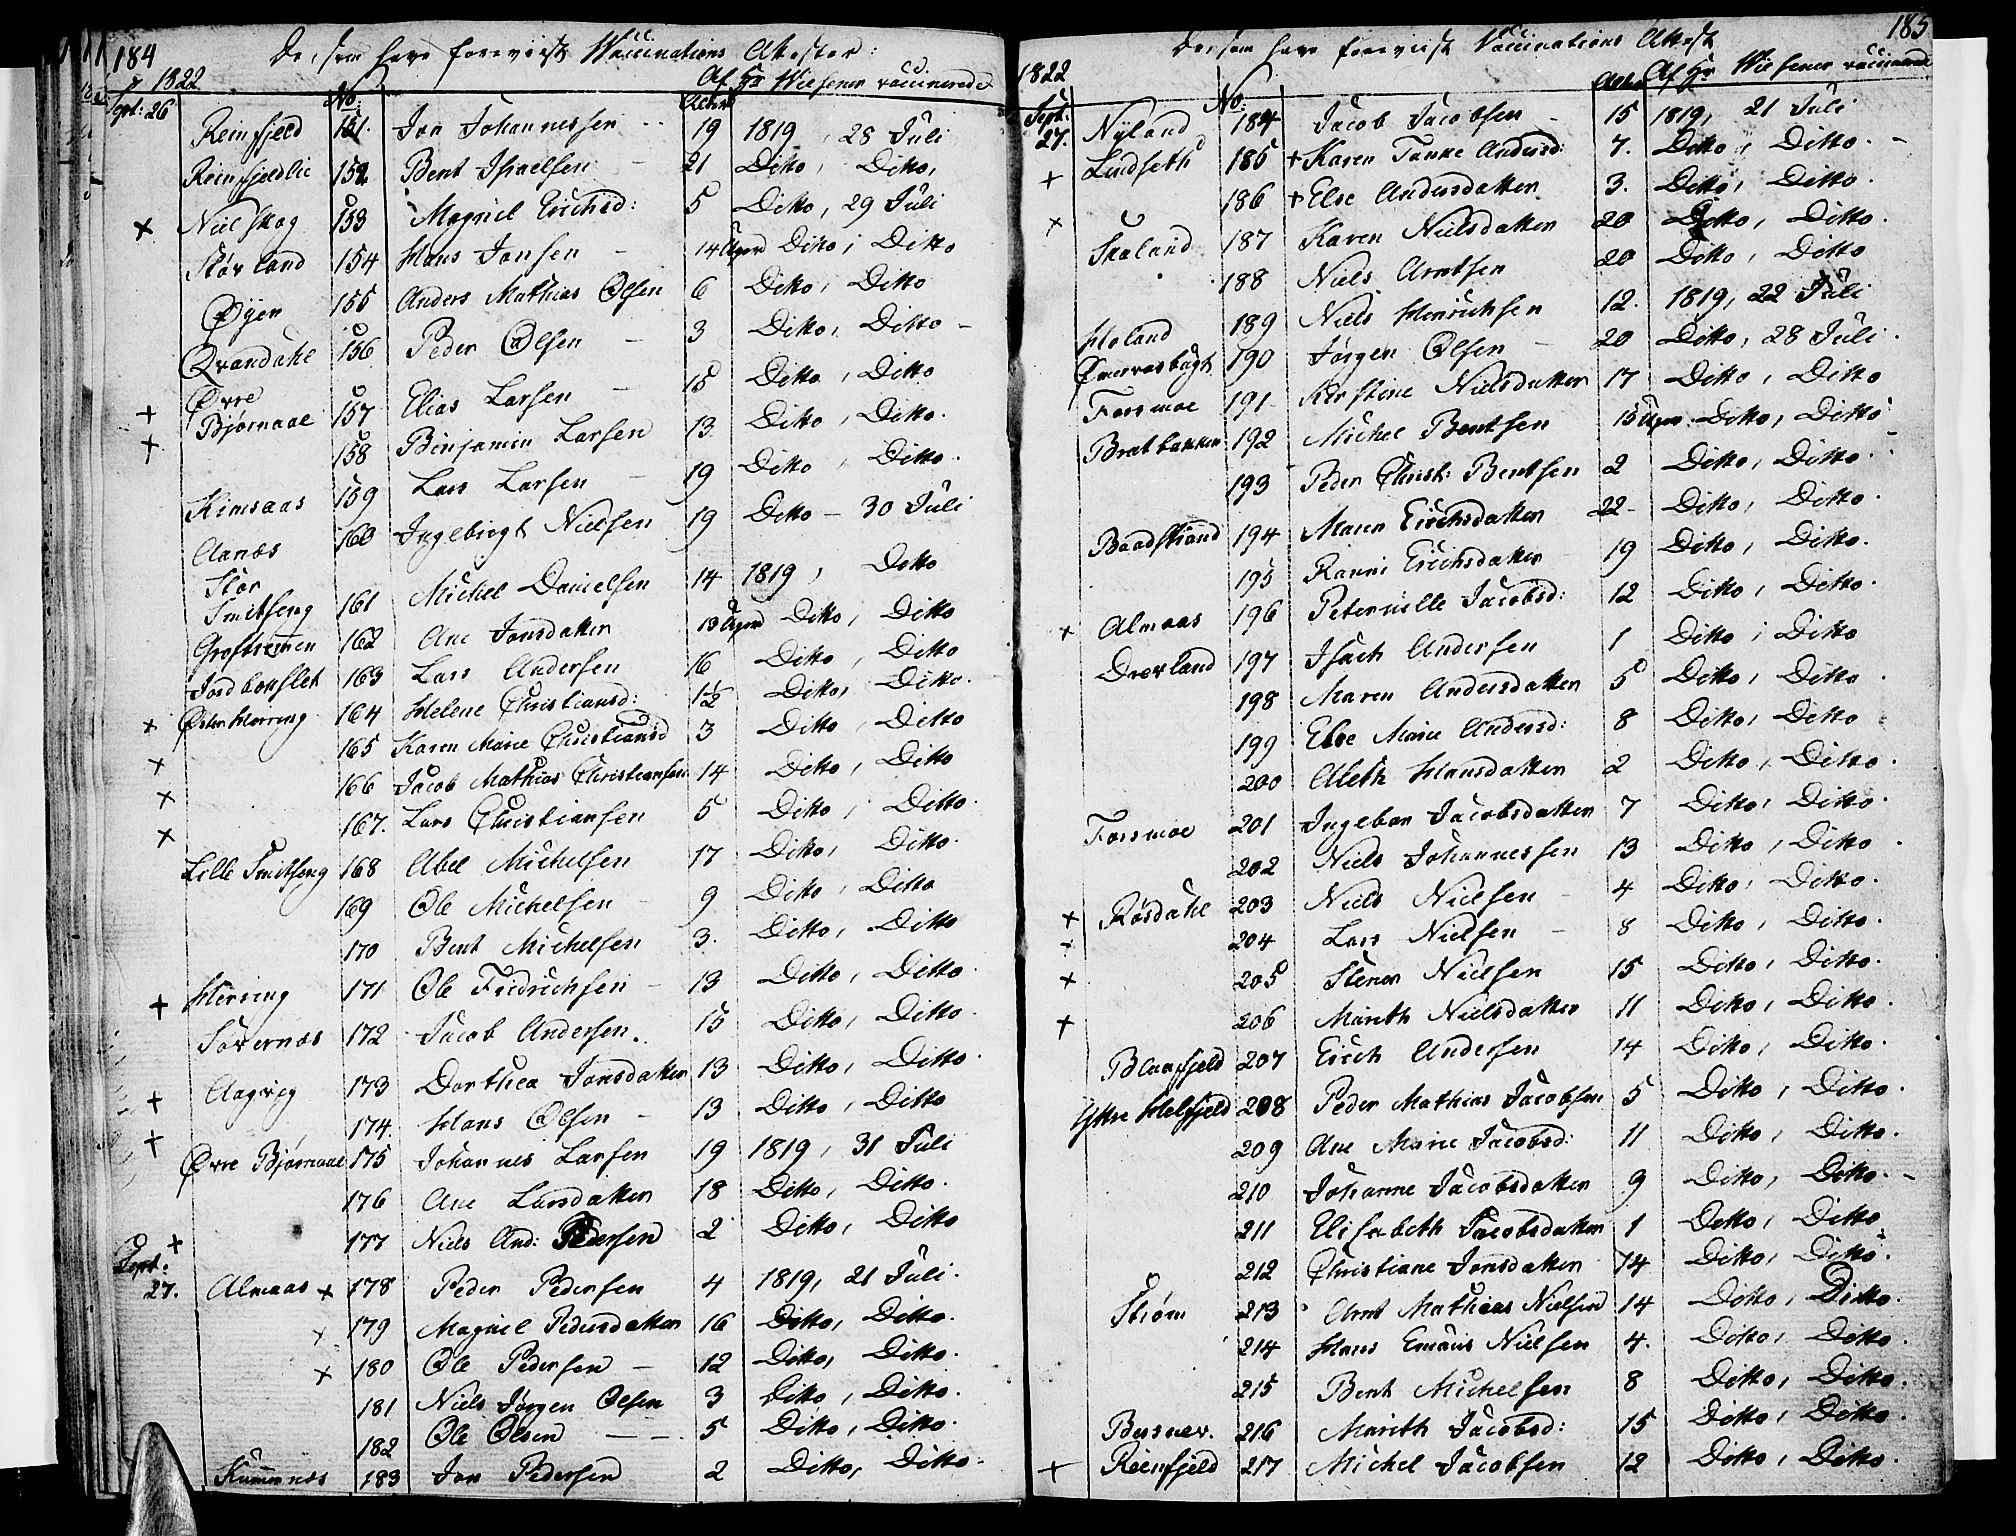 184
De, som have foreviist Vaccinations Attester:
1822 Af Hr Wiesener vaccinerede
Sept: 26 No: Alder
Reinfjeld 151. Jon Johannessen 19 1819, 28 Juli
Reinfjeldlie 152 Bent Israelsen 21 Ditto, Ditto,
+ Nielskog 153 Magnil Erichsd: 5 Ditto, 29 Juli
Storland 154 Hans Jonsen 14 Uger Ditto, Ditto
Øyen 155 Anders Mathias Olsen 6 Ditto, Ditto
Qvandahl 156 Peder Olsen 3 Ditto, Ditto
Øvre
+ Bjørnaae 157 Elias Larsen 15 Ditto, Ditto
+ 158 Binjamin Larsen 13 Ditto, Ditto.
Kimsaas 159 Lars Larsen 19 Ditto, Ditto.
Aanæs 160 Ingebrigt Nielsen 19 Ditto - 30 Juli
Stor
Smitseng 161 Michel Danielsen 14 1819, Ditto
162 Ane Jonsdatter 13 Uger Ditto, Ditto
163 Lars Andersen 16 Ditto, Ditto
+ 164 Helene Christiansd: 1/2 Ditto, Ditto.
+ 165 Karen Marie Christiansd 3 Ditto, Ditto
+ 166 Jacob Mathias Christiansen 14 Ditto, Ditto
+ 167. Lars Christiansen 5 Ditto, Ditto.
Lille Smitseng 168 Abel Michelsen 17 Ditto, Ditto.
169 Ole Michelsen 9 Ditto, Ditto
170 Bent Michelsen 3. Ditto, Ditto
+ Herring 171 Ole Fridrichsen 13 Ditto, Ditto.
Sövernæs 172 Jacob Andersen. 15 Ditto, Ditto.
+ Aagvig 173 Dorthea Jonsdatter 13 Ditto, Ditto.
+ 174. Hans Olsen 13 Ditto, Ditto
Øvre Bjørnaae 175 Johannes Larsen 19 1819, 31 Juli
176 Ane Larsdatter 18 Ditto, Ditto.
+ 177 Niels And: Pedersen 2 Ditto, Ditto
Sept:
27. Almaas + 178 Peder Pedersen 4 1819, 21 Juli.
+ 179 Magnil Pedersdatter 16 Ditto, Ditto.
+ 180 Ole Pedersen 12 Ditto, Ditto.
181 Niels Jørgen Olsen 3 Ditto, Ditto.
182 Ole Olsen 5 Ditto, Ditto.
183 Jon Pedersen 2 Ditto, Ditto.
185
De, som have foreviist Vaccinations Attest
1822 Af Hr Wiesener vaccinerede
Sept: No: Alder
27. Nyland 184 Jacob Jacobsen 15 1819, 21 Juli
+ Lindseth 185 + Karen Tanke Andersd: 7. Ditto, Ditto.
+ 186 + Else Andersdatter 3. Ditto, Ditto.
Skaland 187 Karen Nielsdatter 20 Ditto, Ditto.
188 Niels Arntsen 20 Ditto, Ditto
Holand 189 Niels Hinrichsen 12. 1819, 22 Juli
190 Jørgen Olsen 20 Ditto, 28 Juli.
Forsmoe 191 Kirstine Nielsdatter 17 Ditto, Ditto
Bratbakken 192 Michel Bentsen 15 Uger Ditto, Ditto
193 Peder Christ: Bentsen 2 Ditto, Ditto.
Baadstrand 194 Maren Erichsdatter 22 Ditto, Ditto.
195 Ranni Erichsdatter 19 Ditto, Ditto.
+ Almaas 196 Peternille Jacobsd: 12 Ditto, Ditto.
Drevland 197 Isach Andersen 1 Ditto, Ditto
198 Maren Andersdatter 5 Ditto, Ditto.
199 Else Marie Andersd: 8 Ditto, Ditto
200 Aleth Hansdatter 2 Ditto, Ditto.
Forsmoe 201 Ingebor Jacobsdatter 7 Ditto, Ditto.
202 Niels Johannessen 13 Ditto, Ditto.
+ Røsdahl 203 Niels Nielsen 4 Ditto, Ditto.
+ 204 Lars Nielsen 8 Ditto, Ditto.
+ 205 Stener Nielsen 15 Ditto, Ditto.
+ 206 Marith Nielsdatter 11 Ditto, Ditto.
Blaafjeld 207 Erich Andersen 14 Ditto, Ditto.
Yttre Helfjeld 208 Peder Mathias Jacobsen 5 Ditto, Ditto.
209 Ane Marie Jacobsd: 11 Ditto, Ditto.
210 Johanne Jacobsdatter 9 Ditto, Ditto.
211 Elisabeth Jacobsdatter 1 Ditto, Ditto
212 Christiane Jonsdatter 14 Ditto, Ditto.
Strøm 213 Arnt Mathias Nielsen 14 Ditto, Ditto.
214 Hans Emaus Nielsen 4. Ditto, Ditto.
215 Bent Michelsen 8 Ditto, Ditto.
216 Marith Jacobsd: 15 Ditto, Ditto.
+ Reinfjeld 217 Michel Jacobsen 12 Ditto, Ditto.